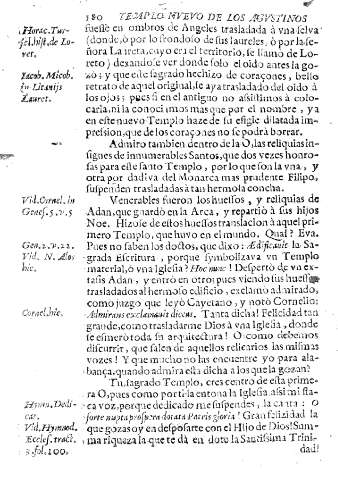 180 TEMPLO NUEVO DE LOS AGUSTINOS
Horac. Tur-
sel. hist. de Lo-
ret.
Iacob. Micob.
in Litanijs
Lauret.
fuesse en ombros de Angeles trasladada à vna selva
(donde, ò por lo frondoso de sus laureles, ò por la se-
ñora Laureta, cuyo era el territorio, se llamò de Lo-
reto) dexandose ver donde solo el oido antes la go-
zò; y que esse sagrado hechizo de coraçones, bello
retrato de aquel original, le aya trasladado del oido à
los ojos; pues si en el antiguo no assistimos à colo-
carla, ni la conocimos mas que por el nombre, y a
en este nuevo Templo haze de su efigie dilatada im-
pression, que de los coraçones no se podrà borrar.
Admiro tambien dentro de la O, las reliquias in-
signes de innumerables Santos, que dos vezes honro-
sas para este santo Templo, por lo que son la vna, y
otra por dadiva del Monarca mas prudente Filipo,
suspenden trasladadas à tan hermosa concha.
Vid. Cornel. in
Genes. 5. v. 5
Venerables fueron los huessos, y reliquias de
Adan, que guardò en la Arca, y repartiò à sus hijos
Noe. Hizose de estos huessos translacion à aquel pri-
mero Templo, que huvo en el mundo. Qual? Eva.
Gen. 2. v. 22.
Vid. N. Ælos
hic.
Pues no saben los doctos, que dixo: Ædificavit la Sa-
grada Escritura, porque symbolizava vn Templo
material, ò vna Iglesia? Hoc nunc! Despertò de vn ex-
tasis Adan, y entrò en otro; pues viendo sus huessos
trasladados al hermoso edificio, exclamò admirado,
como juzgo que leyò Cayetano, y notò Cornelio:
Cornel. hic.
Admirans exclamavit dicens. Tanta dicha! Felicidad tan
grande, como trasladarme Dios à vna Iglesia, donde
se esmerò toda su arquitectura! O como debemos
discurrir, que salen de aquellos relicarios las mismas
vozes! Y que mucho no las encuentre yo para ala-
bança, quando admira esta dicha a los que la gozan?
Tu, sagrado Templo, eres centro de esta prime-
ra O, pues como portilla entona la Iglesia assi mis-
Hymn. Dedi-
cat.
Vid. Hymnod.
Eccles. tract.
3. fol. 200.
ca voz, porque dedicado me suspendes, la canta: O
sorte nupta prospera dotata Patris gloria! Gran felicidad la
que gozas oy en desposarte con el Hijo de Dios! Sum-
ma riqueza la que te dà en doto la Santissima Trini-
dad!